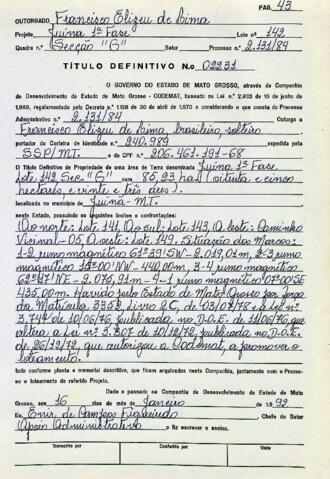 PAG. 43
OUTORGADO Francisco Elizeu de Lima
Projeto Juína 1ª Fase Lote nº 142
Quadra n.º Secção "G" Setor Processo n.º 2.131/84
TÍTULO DEFINITIVO N.o 02231
O GOVERNO DO ESTADO DE MATO GROSSO, através da Companhia
de Desenvolvimento do Estado de Mato Grosso - CODEMAT, baseado na Lei n.º 2.903 de 10 de junho
1969, regulamentada pelo Decreto n.º 1.138 de 30 de abril de 1970 e considerando o que consta do Processo
Administrativo n.º 2.131/84 Outorga a
Francisco Elizeu de Lima, brasileiro, solteiro
portador da Carteira de Identidade n.º 240.989 expedida pela
SSP/MT. e do CPF n.º 206.461.191-68
O Título Definitivo de Propriedade de uma área de Terra denominada Juína 1ª Fase
Lote 142, Sec "G" com 85,23 ha (oitenta e cinco
hectares, e vinte e três ares).
localizada no município de Juína-MT.
neste Estado, possuindo os seguintes limites e confrontações:
(Ao norte: Lote 141, Ao sul: Lote 143, A leste: Caminho
Vicinal-05, A oeste: Lote 149. Situação dos Marcos:
1-2 rumo magnético 61º39'SW-2.019,01m, 2-3 rumo
magnético NW-440,00m, 3-4 rumo magnético
62º47'NE-2.076,91m-4-1 rumo magnético 07º00'SE
435,00m. Havido pelo Estado de Mato Grosso por força
da Matrícula 3352, Livro 2C, de 03/07/78, a Lei nº
3.744 de 10/06/76, publicada no D.O.E. de 11/06/76, que
altera a Lei nº 3.307 de 10/12/72, publicada no D.O.E.
de 26/12/72, que autorizou a Codemat, a promover o
loteamento.
tudo conforme planta e memorial descritivo, que ficam arquivados nesta Companhia, juntamente com o Processo
e loteamento do referido Projeto.
Dada e passada na Companhia de Desenvolvimento do Estado de Mato
Grosso, aos 16 dias do mês de Janeiro de 1.9 92
Eu, Enir de Campos Figueiredo Chefe do Setor
Apoio Administrativo o fiz escrever e assino.
Transcrito por Conferido por Visto